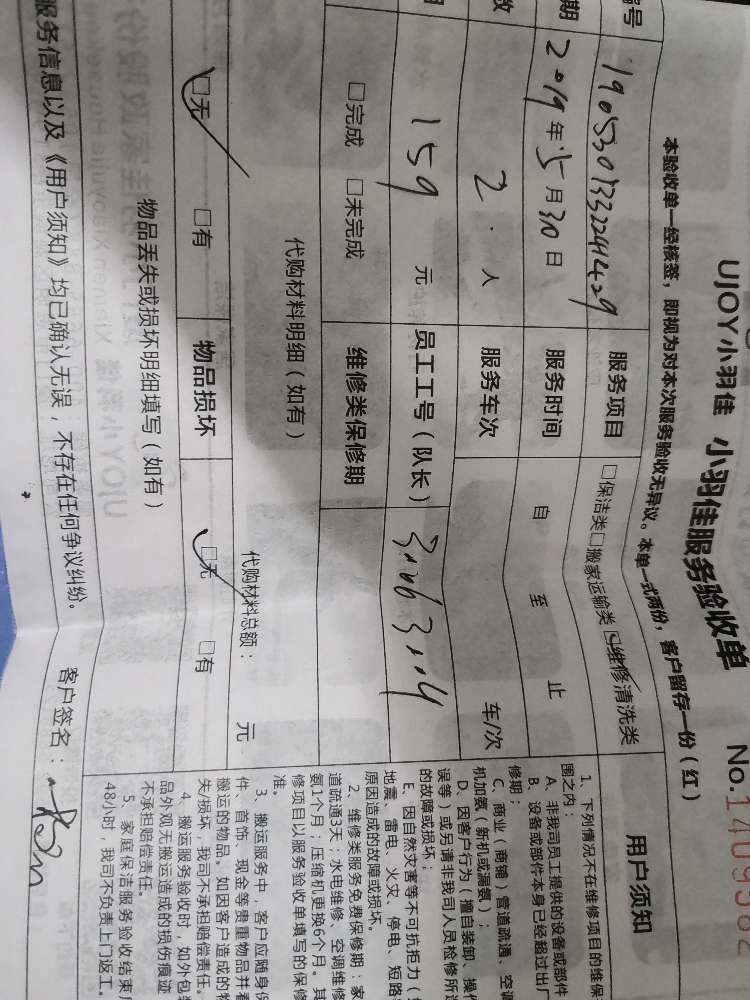 UJOY小羽佳 小羽佳服务验收单 No.1409582
本验收单一经核签，即视为对本次服务验收无异议。本单一式两份，客户留存一份（红）
号 服务项目 □保洁类□搬家运输类 ☑维修清洗类
期 2019年5月30日 服务时间 自 至 止
数 2 人 服务车次 车/次
159 元 员工工号（队长）
□完成 □未完成 维修类保修期
代购材料明细（如有） 代购材料总额： 元
☑无 □有 物品损坏 ☑无 □有
物品丢失或损坏明细填写（如有）
服务信息以及《用户须知》均已确认无误，不存在任何争议纠纷。
客户签名：
用户须知
1、下列情况不在维修项目的维保
围之内：
A、非我司员工提供的设备或部件
B、设备或部件本身已经超过出厂
修期；
C、商业（商铺）管道疏通、空调
机加氨（新机或漏氨）；
D、因客户行为（擅自装卸、操作
误等）或另请非我司人员检修所造
的故障或损坏；
E、因自然灾害等不可抗拒力（
地震、雷电、火灾、停电、短路
原因造成的故障或损坏。
2、维修类服务免费保修期：家
道疏通3天；水电维修、空调维修
氨1个月；压缩机更换6个月。其
修项目以服务验收单填写的保修
准。
3、搬运服务中，客户应随身保
件、首饰、现金等贵重物品并看
搬运的物品。如因客户造成的物
失/损坏，我司不承担赔偿责任。
4、搬运服务验收时，如外包装
品外观无搬运造成的损伤痕迹
不承担赔偿责任。
5、家庭保洁服务验收结束后
48小时，我司不负责上门返工。